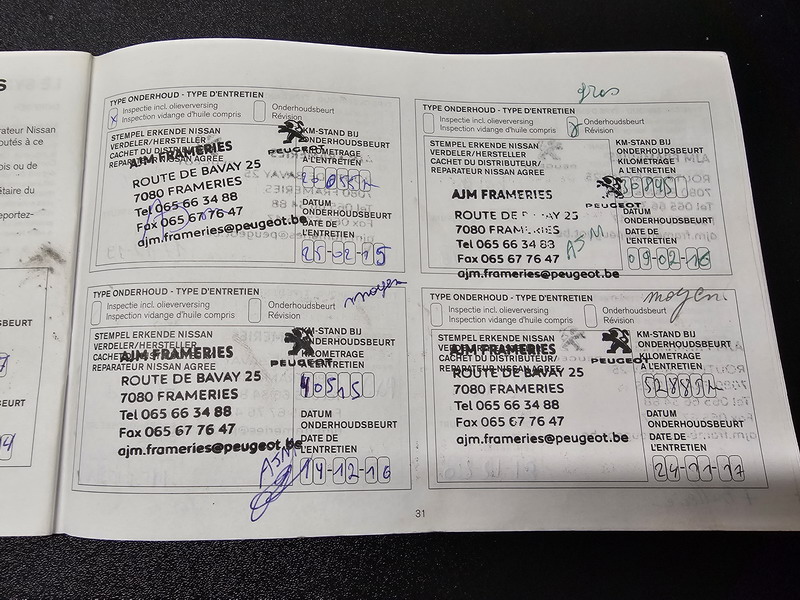 S
rateur Nissan
putés à ce
ois ou de
étaire du
eportez-
EURT
EURT
TYPE ONDERHOUD - TYPE D'ENTRETIEN
Inspectie incl. olieverversing
Inspection vidange d'huile compris
x
Onderhoudsbeurt
Révision
STEMPEL ERKENDE NISSAN
VERDELER/HERSTELLER
CACHET DU DISTRIBUTEUR/
REPARATEUR NISSAN AGREE
AJM FRAMERIES
ROUTE DE BAVAY 25
7080 FRAMERIES
Tel 065 66 34 88
Fax 065 67 76 47
ajm.frameries@peugeot.be
PEUGEOT
KM-STAND BIJ
ONDERHOUDSBEURT
KILOMETRAGE
A L'ENTRETIEN
DATUM
ONDERHOUDSBEURT
DATE DE
L'ENTRETIEN
25-02-15
gros
TYPE ONDERHOUD - TYPE D'ENTRETIEN
Inspectie incl. olieverversing
Inspection vidange d'huile compris
Onderhoudsbeurt
Révision
STEMPEL ERKENDE NISSAN
VERDELER/HERSTELLER
CACHET DU DISTRIBUTEUR/
REPARATEUR NISSAN AGREE
AJM FRAMERIES
ROUTE DE BAVAY 25
7080 FRAMERIES
Tel 065 66 34 88
Fax 065 67 76 47
ajm.frameries@peugeot.be
ASM
PEUGEOT
KM-STAND BIJ
ONDERHOUDSBEURT
KILOMETRAGE
A L'ENTRETIEN
DATUM
ONDERHOUDSBEURT
DATE DE
L'ENTRETIEN
09-02-16
moyen
TYPE ONDERHOUD - TYPE D'ENTRETIEN
Inspectie incl. olieverversing
Inspection vidange d'huile compris
Onderhoudsbeurt
Révision
STEMPEL ERKENDE NISSAN
VERDELER/HERSTELLER
CACHET DU DISTRIBUTEUR/
REPARATEUR NISSAN AGREE
AJM FRAMERIES
ROUTE DE BAVAY 25
7080 FRAMERIES
Tel 065 66 34 88
Fax 065 67 76 47
ajm.frameries@peugeot.be
ASM
PEUGEOT
KM-STAND BIJ
ONDERHOUDSBEURT
KILOMETRAGE
A L'ENTRETIEN
40515
DATUM
ONDERHOUDSBEURT
DATE DE
L'ENTRETIEN
14-12-16
moyen.
TYPE ONDERHOUD - TYPE D'ENTRETIEN
Inspectie incl. olieverversing
Inspection vidange d'huile compris
Onderhoudsbeurt
Révision
STEMPEL ERKENDE NISSAN
VERDELER/HERSTELLER
CACHET DU DISTRIBUTEUR/
REPARATEUR NISSAN AGREE
AJM FRAMERIES
ROUTE DE BAVAY 25
7080 FRAMERIES
Tel 065 66 34 88
Fax 065 67 76 47
ajm.frameries@peugeot.be
PEUGEOT
KM-STAND BIJ
ONDERHOUDSBEURT
KILOMETRAGE
A L'ENTRETIEN
DATUM
ONDERHOUDSBEURT
DATE DE
L'ENTRETIEN
24-11-17
31